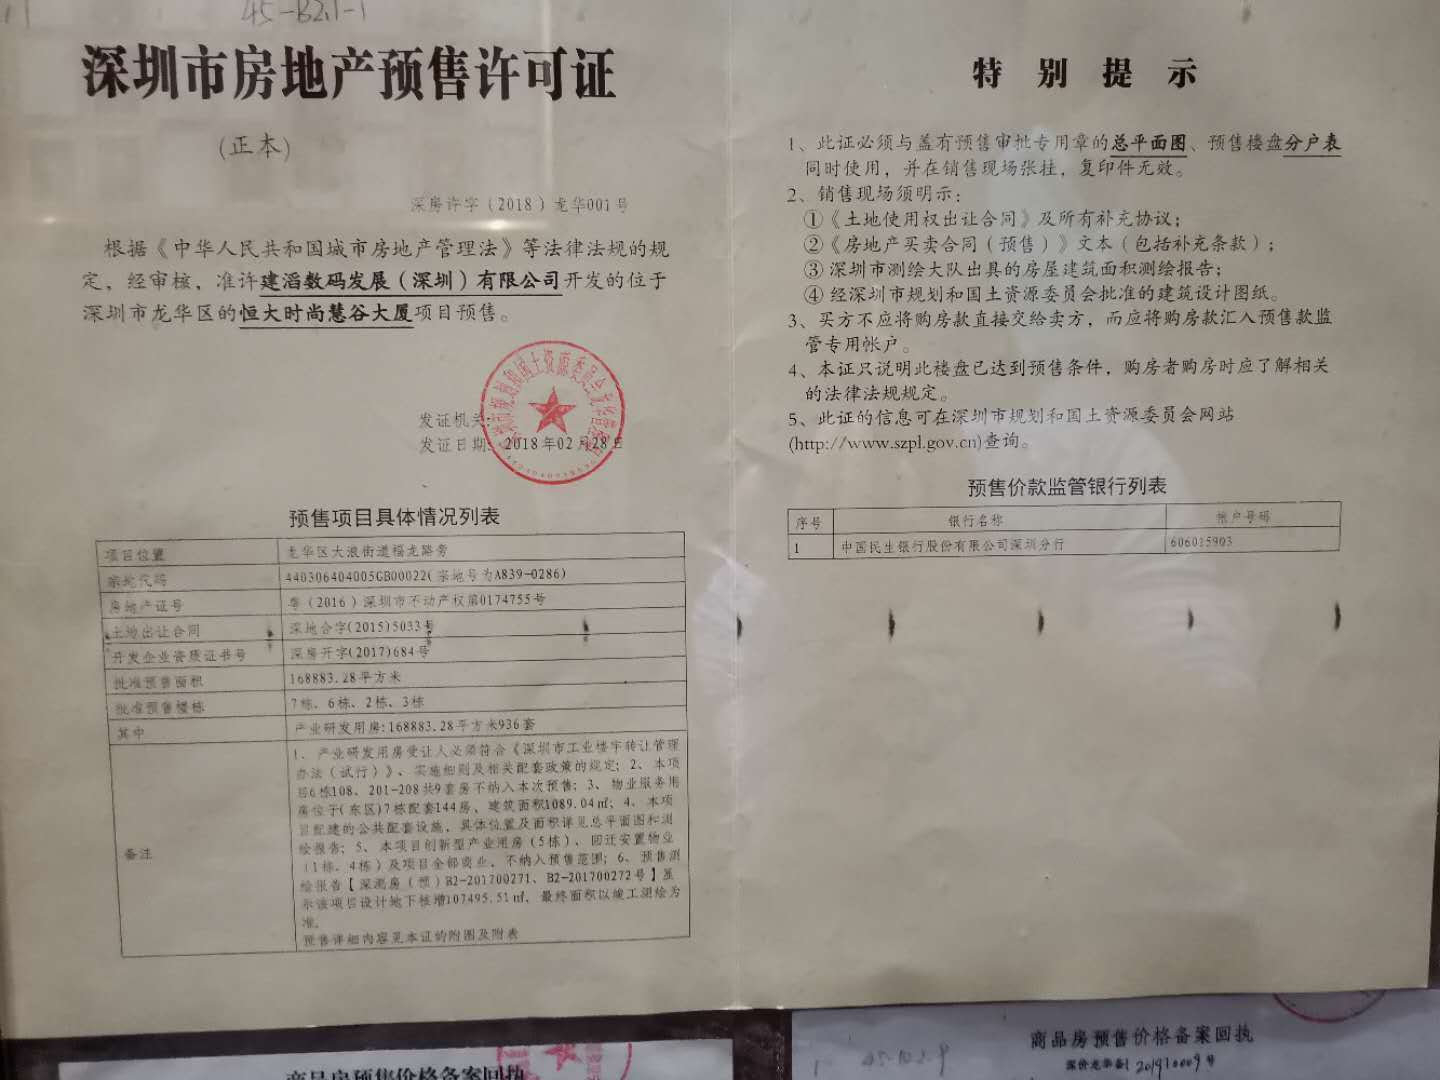 45-B2.1-1
深圳市房地产预售许可证
(正本)
深房许字（2018）龙华001号
根据《中华人民共和国城市房地产管理法》等法律法规的规
定，经审核，准许建滔数码发展（深圳）有限公司开发的位于
深圳市龙华区的恒大时尚慧谷大厦项目预售。
发证机关:
发证日期: 2018年02月28日
预售项目具体情况列表
项目位置 龙华区大浪街道福龙路旁
宗地代码 440306404005GB00022(宗地号为A839-0286)
房地产证号 粤（2016）深圳市不动产权第0174755号
土地出让合同 深地合字(2015)5033号
开发企业资质证书号 深房开字(2017)684号
批准预售面积 168883.28平方米
批准预售楼栋 7栋、6栋、2栋、3栋
其中 产业研发用房:168883.28平方米936套
备注
1、产业研发用房受让人必须符合《深圳市工业楼宇转让管理
办法（试行）》、实施细则及相关配套政策的规定; 2、本项
目6栋108、201-208共9套房不纳入本次预售; 3、物业服务用
房位于(东区)7栋配套144房、建筑面积1089.04㎡; 4、本项
目配建的公共配套设施，具体位置及面积详见总平面图和测
绘报告; 5、本项目创新型产业用房（5栋）、回迁安置物业
（1栋、4栋）及项目全部商业，不纳入预售范围; 6、预售测
绘报告【深测房（预）B2-201700271、B2-201700272号】显
示该项目设计地下核增107495.51㎡，最终面积以竣工测绘为
准。
预售详细内容见本证的附图及附表
特别提示
1、此证必须与盖有预售审批专用章的总平面图、预售楼盘分户表
同时使用，并在销售现场张挂，复印件无效。
2、销售现场须明示：
①《土地使用权出让合同》及所有补充协议；
②《房地产买卖合同（预售）》文本（包括补充条款）；
③深圳市测绘大队出具的房屋建筑面积测绘报告；
④经深圳市规划和国土资源委员会批准的建筑设计图纸。
3、买方不应将购房款直接交给卖方，而应将购房款汇入预售款监
管专用帐户。
4、本证只说明此楼盘已达到预售条件，购房者购房时应了解相关
的法律法规规定。
5、此证的信息可在深圳市规划和国土资源委员会网站
(http://www.szpl.gov.cn)查询。
预售价款监管银行列表
序号 银行名称 帐户号码
1 中国民生银行股份有限公司深圳分行 606015903
商品房预售价格备案回执
商品房预售价格备案回执